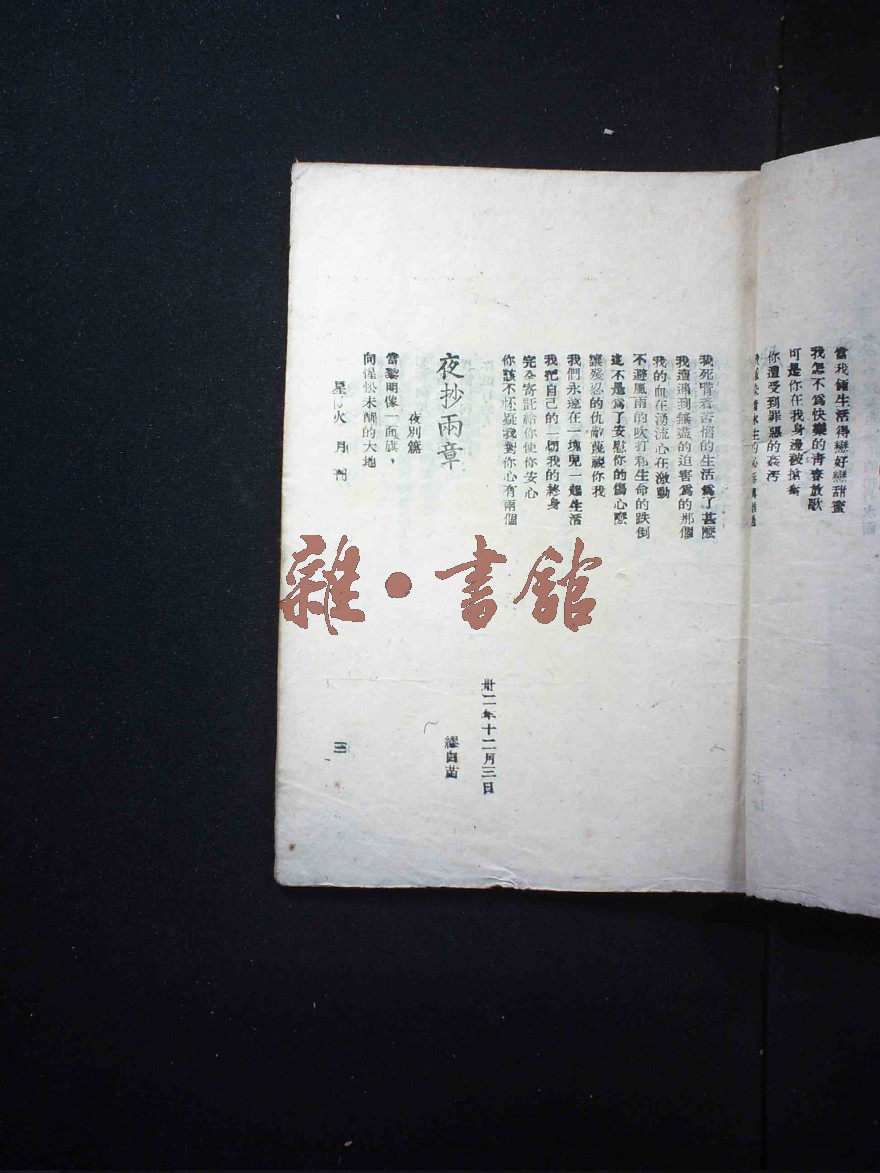 當我倆生活得戀好戀甜蜜
我怎不爲快樂的青春放歌
可是你在我身邊被搶奪
你遭受到罪惡的姦汚
我死背着苦惱的生活爲了甚麼
我遭遇到無盡的迫害爲的那個
我的血在湧流心在激動
不避風雨的吹打和生命的跌倒
這不是爲了安慰你的傷心麼
讓殘忍的仇敵蔑視你我
我們永遠在一塊兒一起生活
我把自己的一切我的終身
完全寄託給你使你安心
你該不怪疑我對你心有兩個
卅二年十二月三日
夜抄兩章
繆白苗
夜別篇
當黎明像一面旗，
向惺忪未醒的大地
星火月刊
三
雜·書館